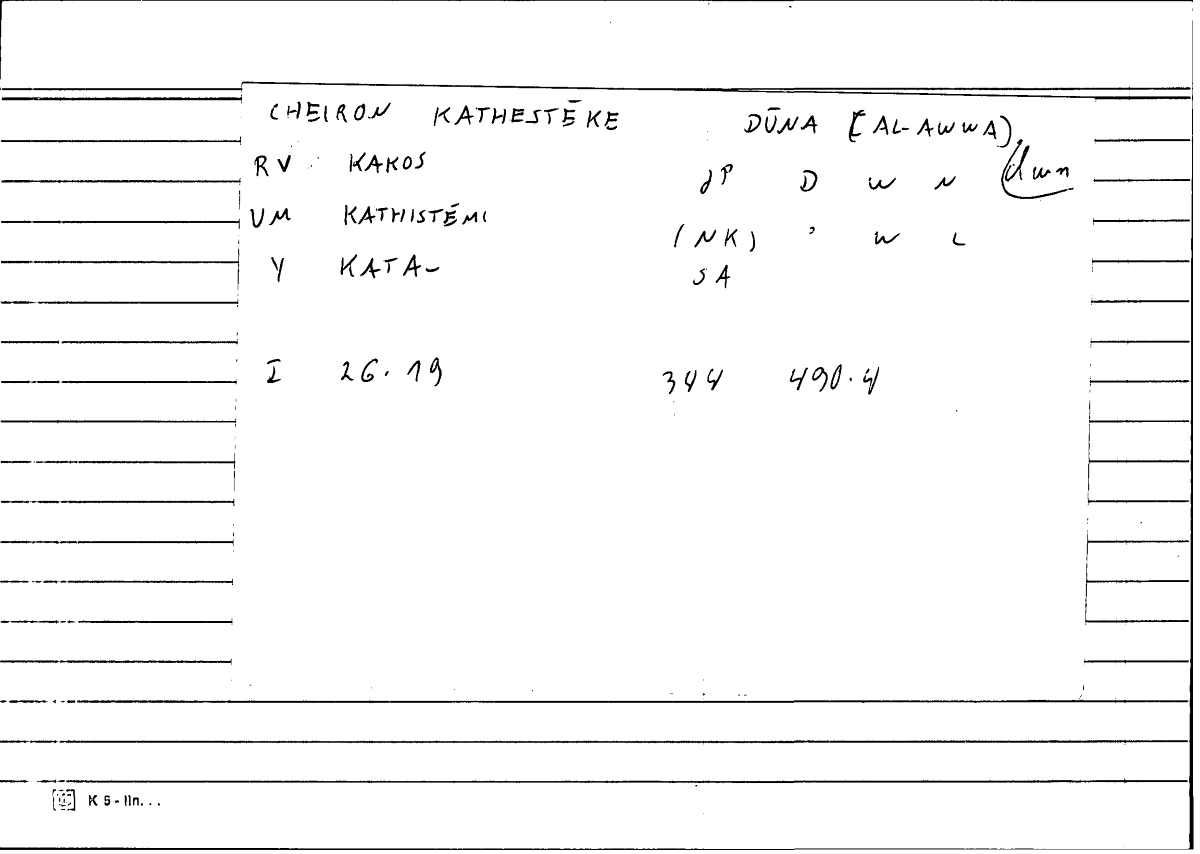 CHEIRON KATHESTĒKE DŪNA [AL-AWWA)
RV KAKOS JP D W N dwn
UM KATHISTĒMI (NK) ' W L
Y KATA- SA
I 26.19 344 490.4
K 5 - lln...